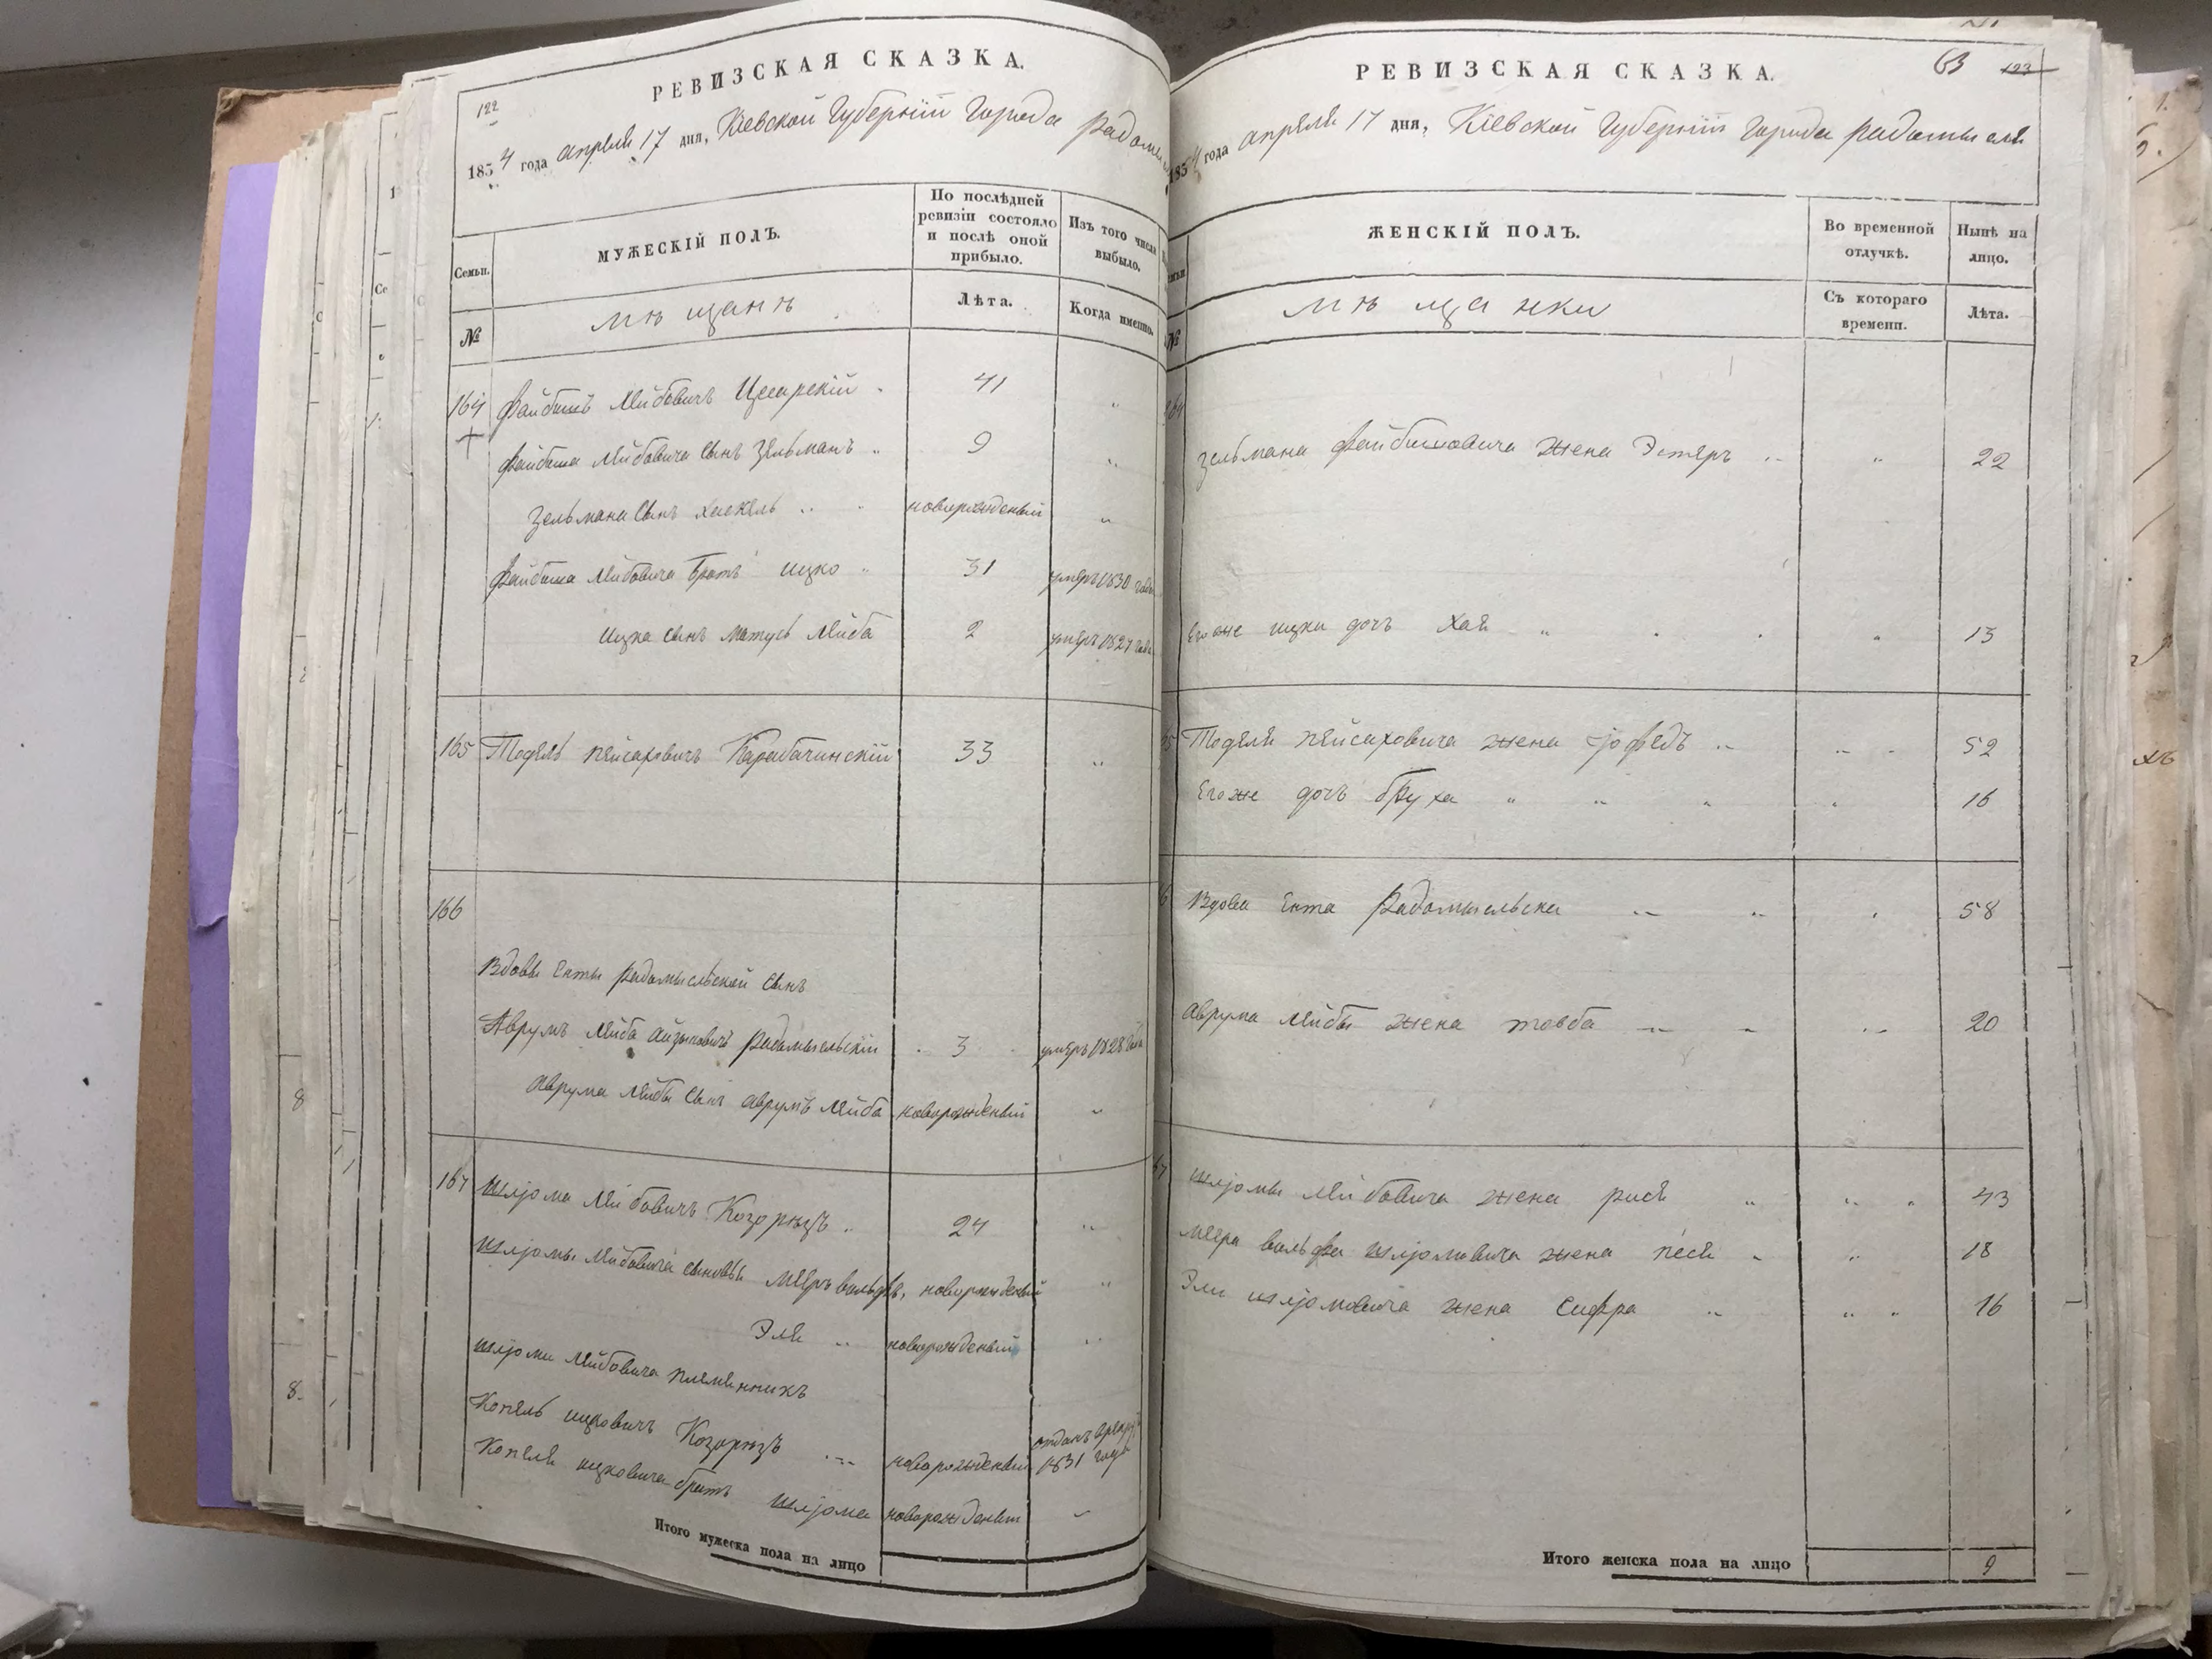 122
РЕВИЗСКАЯ СКАЗКА.
1854 года апреля 17 дня, Кіевской Губерніи Города Радомы
Семьи.
МУЖЕСКІЙ ПОЛЪ.
По послѣдней ревизіи состояло и послѣ оной прибыло.
Изъ того числа выбыло.
№
мѣщанъ
Лѣта.
Когда именно.
164 Файбишъ Лейбовичъ Цесарскій 41 "
Файбиша Лейбовича сынъ Зельманъ 9 "
Зельмана сынъ Хаскель новорожденый "
Файбиша Лейбовича братъ Ицко 31 умеръ 1830 года
Ицка сынъ Матусь Лейба 2 умеръ 1827 года
165 Тодель Пейсаховичъ Карабачинскій 33 "
166
Вдовы Енты Радомысльской сынъ
Аврумъ Лейба Айзыковичъ Радомысельскій 3 умеръ 1828 года
Аврума Лейбы сынъ Аврумъ Лейба новорожденый "
167 Шліома Лейбовичъ Когорізъ 24 "
Шліомы Лейбовича сыновья Мееръ Вольфъ, новорожденый "
Эля новорожденый "
Шліомы Лейбовича племенникъ
Копель Ицковичъ новорожденый отданъ 1831 года
Копеля Ицковича братъ Шліома новорожденый "
Итого мужеска пола на лицо
РЕВИЗСКАЯ СКАЗКА.
63 123
1854 года апреля 17 дня, Кіевской Губерніи Города Радомысля
ЖЕНСКІЙ ПОЛЪ.
Во временной отлучкѣ.
Нынѣ на лицо.
№
мѣщанки
Съ котораго времени.
Лѣта.
Зельмана Файбишовича жена Эстеръ " 22
Егоже Ицки дочь Хая " 13
Тоделя Пейсаховича жена " 52
Егоже дочь Бруха " 16
Вдова Ента Радомысельска " 58
Аврума Лейбы жена Товба " 20
Шліомы Лейбовича жена Рися " 43
Меера Вольфа Шліомовича жена Песя " 18
Эли Шліомовича жена Сифра " 16
Итого женска пола на лицо 9